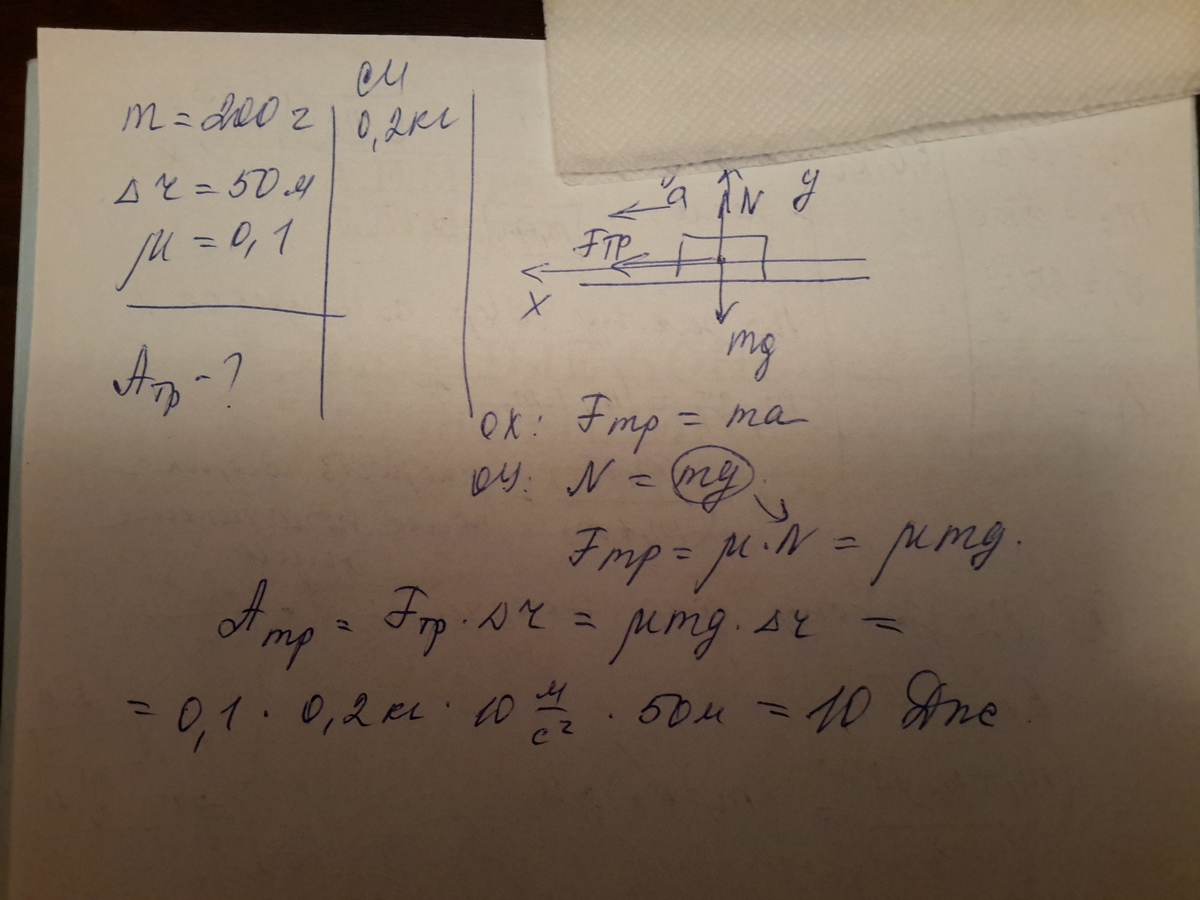 СИ
m = 200 г 0,2 кг
Δr = 50 м
μ = 0,1
Aтр - ?
a N y
Fтр
x
mg
OX: Fтр = ma
OY: N = mg
Fтр = μ · N = μmg.
Aтр = Fтр · Δr = μmg · Δr =
= 0,1 · 0,2 кг · 10 м/с² · 50 м = 10 Дж.